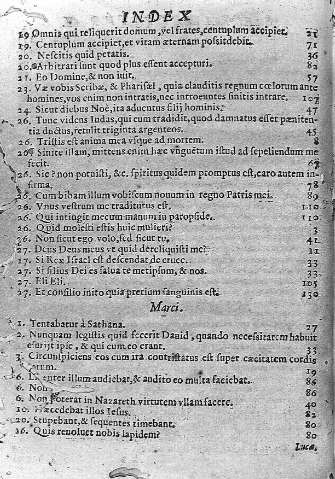 INDEX
19 Omnis qui reliquerit domum, vel frates, centuplum accipiet. 21
19. Centuplum accipiet, et vitam æternam possidebit. 71
20. Nescitis quid petatis. 36
20. Arbitrati sunt quod plus essent accepturi. 82
21. Eo Domine, & non iuit. 57
23. Væ vobis Scribæ, & Pharisæi, quia clauditis regnum cœlorum ante
homines, vos enim non intratis, nec introeuntes sinitis intrare. 107
24. Sicut diebus Noè, ita aduentus filij hominis. 47
26. Tunc videns Iudas, qui eum tradidit, quod damnatus esset pæniten
tia ductus, retulit triginta argenteos. 45
26. Tristis est anima mea vsque ad mortem. 8
26. Sinite illam, mittens enim hæc vnguētum istud ad sepeliendum me
fecit. 67
26. Sic? non potuisti, &c. spiritus quidem promptus est, caro autem in-
firma. 78
26. Cum bibam illum vobiscum nouum in regno Patris mei. 89
26. Vnus vestrum me traditurus est. 110
26. Qui intingit mecum manum in paropside. 110
26. Quid molesti estis huic mulieri? 3
26. Non sicut ego volo, sed sicut tu. 41
27. Deus Deus meus vt quid dereliquisti me? 31
27. Si Rex Israel est descendat de cruce. 33
27. Si filius Dei es salua te metipsum, & nos. 33
27. Eli Eli. 105
27. Et consilio inito quia precium sanguinis est. 130
Marci.
1. Tentabatur à Sathana. 27
2. Nunquam legistis quid fecerit Dauid, quando necessitatem habuit
esurijt ipse, & qui cum eo erant. 33
3. Circunspiciens eos cum ira contristatus est super cæcitatem cordis
19
6. Libenter illum audiebat, & audito eo multa faciebat. 85
6. Non 86
6. Non poterat in Nazareth virtutem vllam facere. 40
10. Præcedebat illos Iesus. 82
10. Stupebant, & sequentes timebant. 80
16. Quis reuoluet nobis lapidem? 80
Luca,